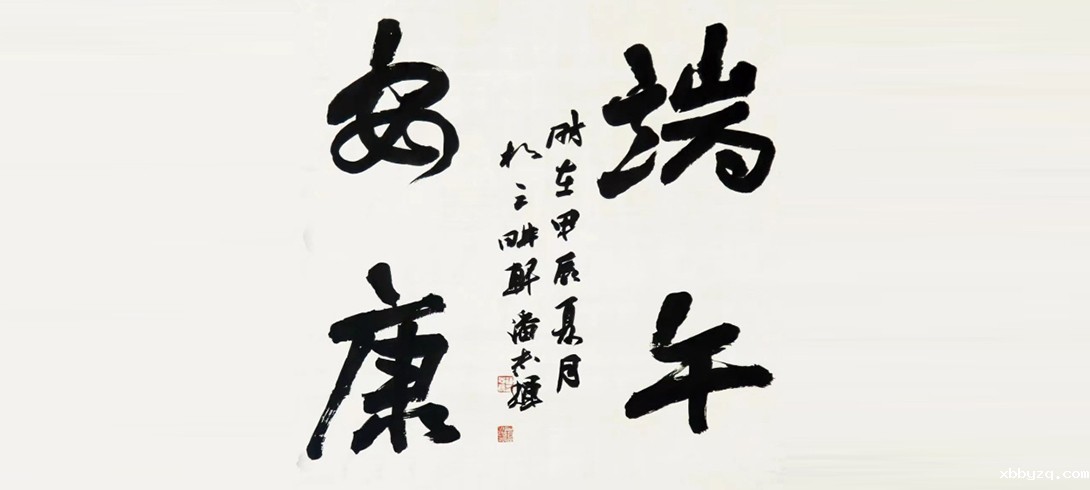 端午
安康
时在甲辰夏月
于三畊轩潘志
xbbyzq.com